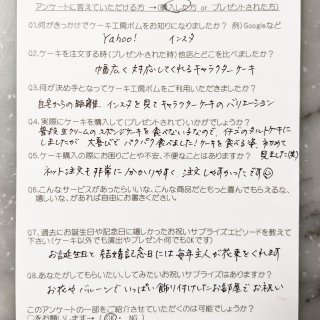 アンケートに答えていただける方 → (購入した方 or プレゼントされた方)
Q1.何がきっかけでケーキ工房ボムをお知りになりましたか？ 例)Googleなど
Yahoo! インスタ
Q2.ケーキを注文する時(プレゼントされた時)他店とどこを比べましたか？
幅広く対応してくれるキャラクターケーキ
Q3.何が決め手となってケーキ工房ボムをご利用いただきましたか？
自宅からの距離、インスタを見てキャラクターケーキのバリエーション
Q4.実際にケーキを購入して(プレゼントされて)いかがでしたか？
普段生クリームのスポンジケーキを食べない子なので、イチゴのタルトケーキに
しましたが大喜びでパクパク食べました！ケーキを食べる姿、初めて
見ました(笑)
Q5.ケーキ購入の際にお困りごとや不安、不便なことはありますか？
ネット注文も非常に分かりやすく注文しやすかったです
Q6.こんなサービスがあったらいいな、こんな商品だともっと喜んでもらえるな、
嬉しいな、があれば自由にお書きください。
Q7.過去にお誕生日や記念日に嬉しかったお祝いサプライズエピソードを教えて
下さい(ケーキ以外でも演出やプレゼント何でもOKです)
お誕生日と結婚記念日には毎年主人が花束をくれます
Q8.あなたがしてもらいたい、してみたいお祝いサプライズはありますか？
お花やバルーンでいっぱい飾り付けしたお部屋でお祝い
このアンケートの一部をご紹介させていただくのは可能でしょうか？
○をお願いします→ ( OK ・ NG )